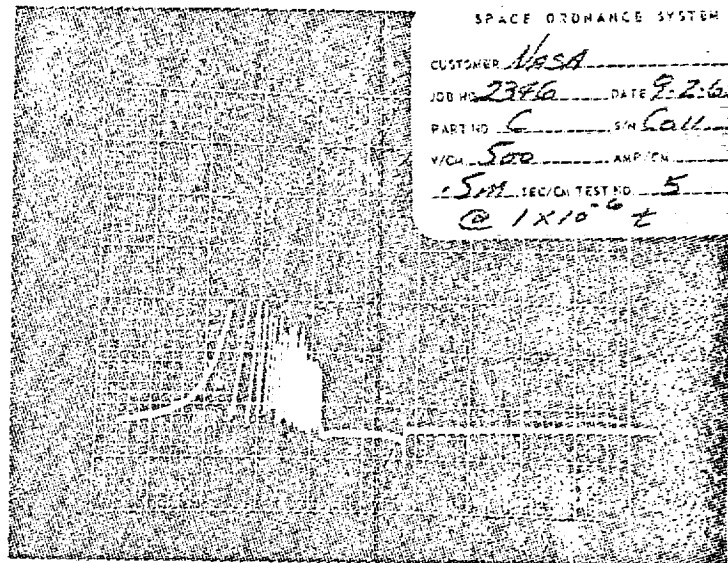 SPACE ORDNANCE SYSTEM
CUSTOMER NASA
JOB NO 2346 DATE 9-2-6
PART NO C S/N
V/CM 500 AMP/CM
.5M SEC/CM TEST NO. 5
@ 1 X 10-6 t